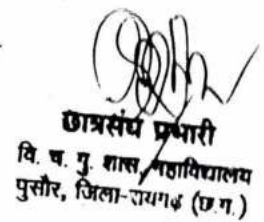 छात्रसंघ प्रभारी
वि. च. गु. शास. महाविद्यालय
पुसौर, जिला-रायगढ़ (छ.ग.)